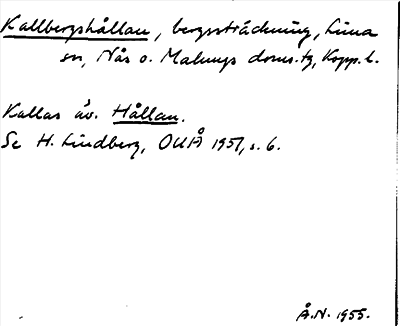 Kallbergshållan, bergssträckning, Lima
sn, Nås o. Malungs doms.tg, Kopp. l.
Kallas äv. Hållan.
Se H. Lindberg, OUÅ 1951, s. 6.
Å.N. 1955.